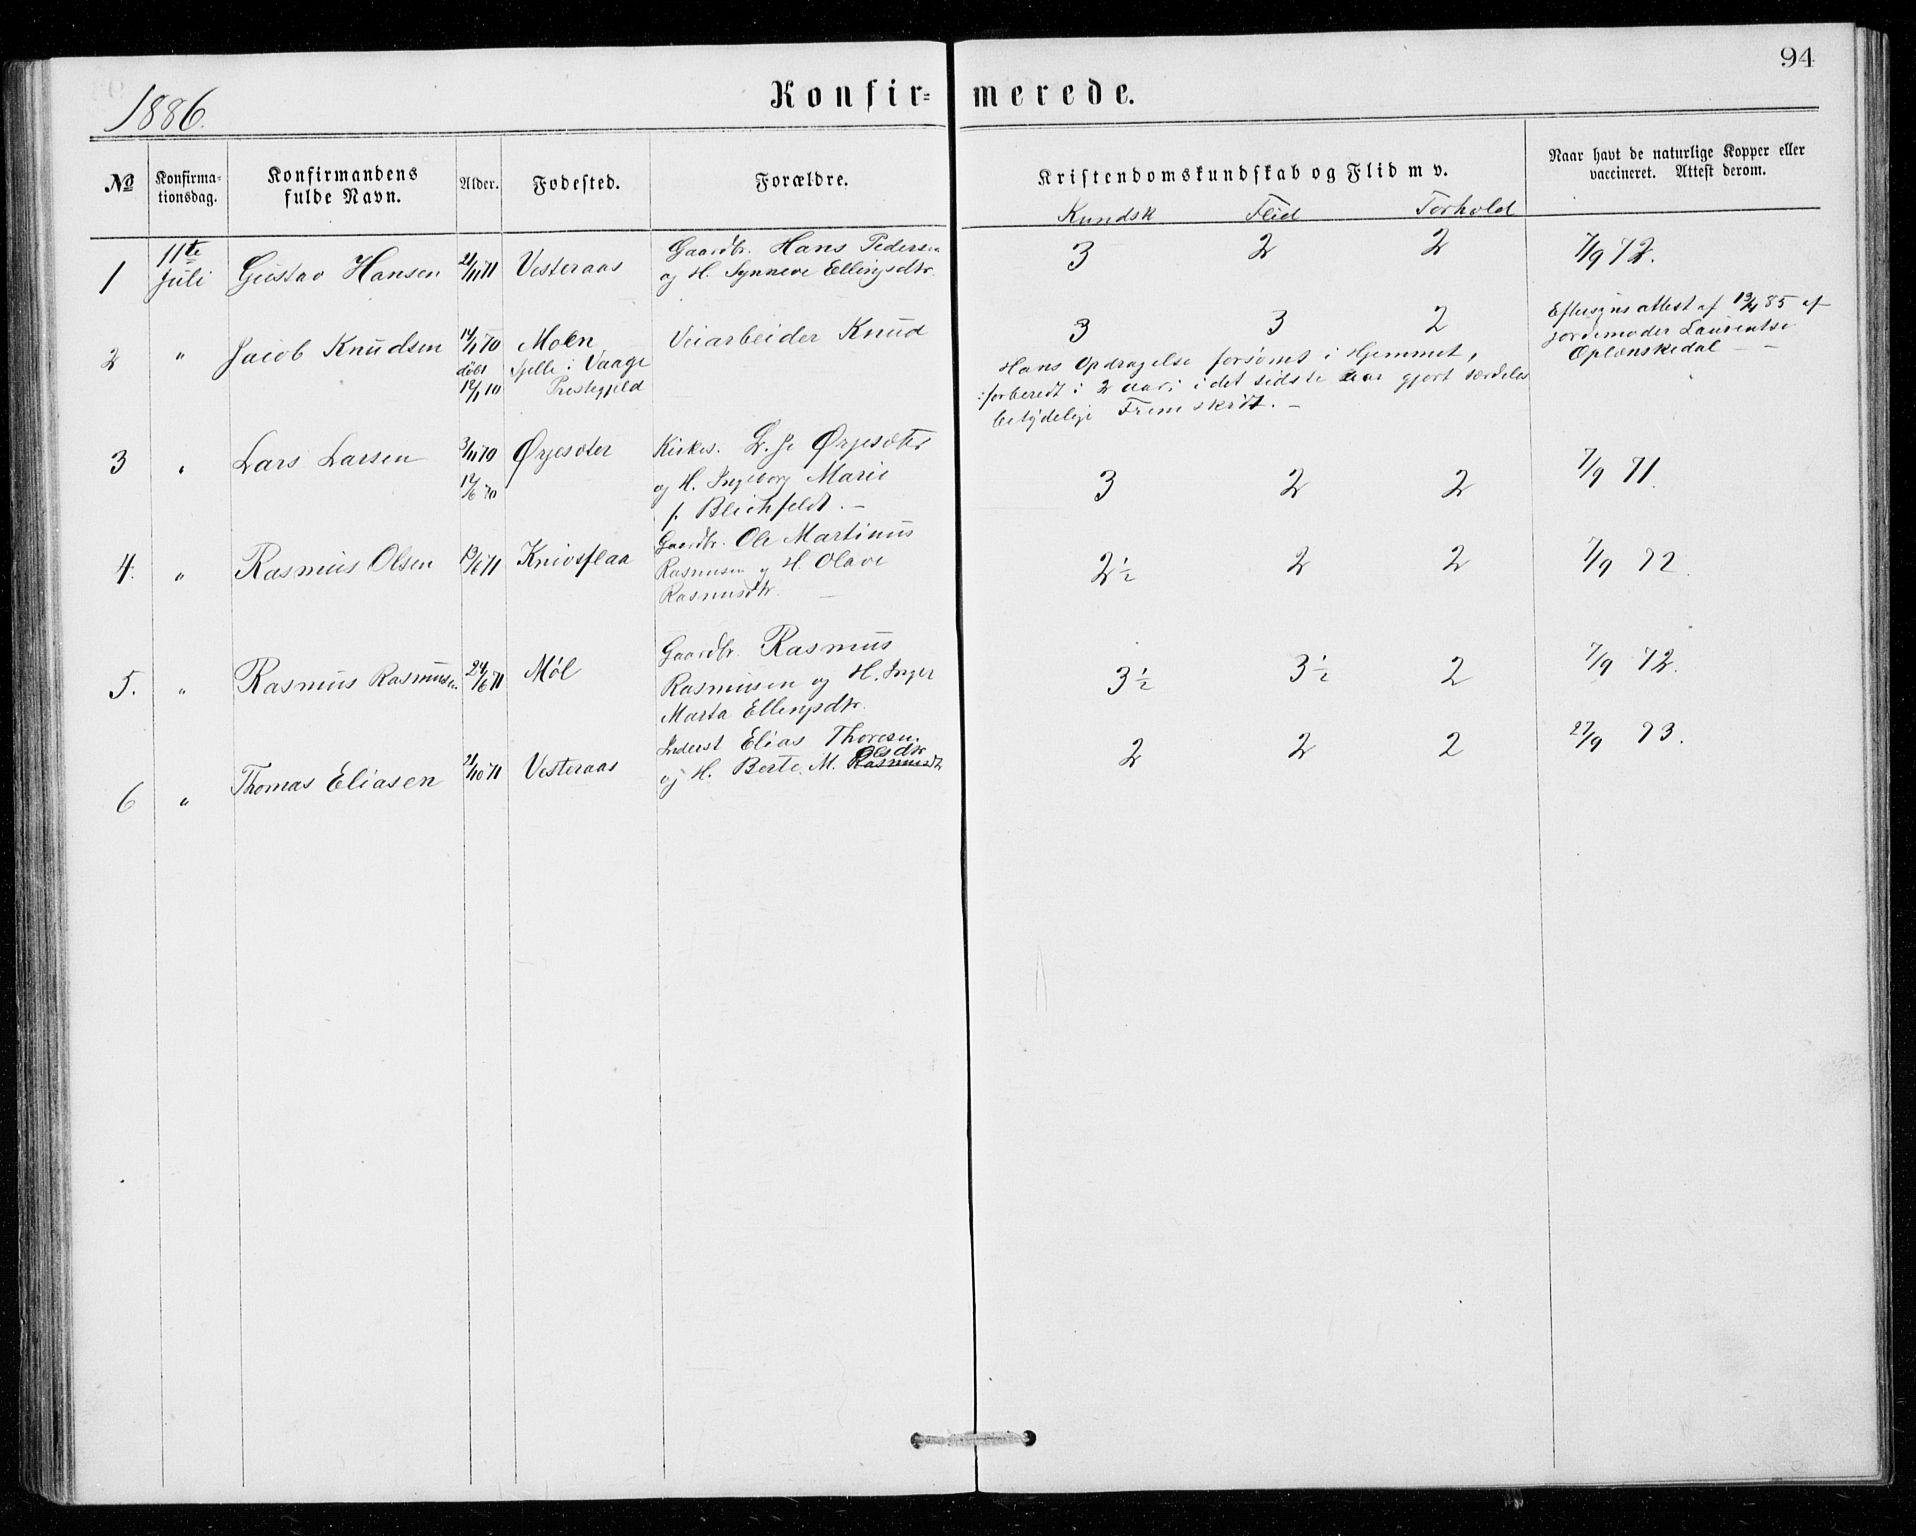 94
1886.
Konfir= merede.
No
Konfirma-
tionsdag.
Konfirmandens
fulde Navn.
Alder.
Fødested.
Forældre.
Kristendomskundskab og Flid m v.
Kundsk Flid Forhold
Naar havt de naturlige Kopper eller
vaccineret. Attest derom.
1 11te Juli Gustav Hansen 21/11 71 Vesteraas
Gaardbr. Hans Pedersen
og H. Synneve Ellingsdtr.
3 2 2 7/9 72.
2 " Jacob Knudsen 14/1 70 Molen
døbt i Vaage
Prestegjeld
Veiarbeider Knud
3 3 2
Hans Opdragelse forsömt i Hjemmet,
forberedt i 2 aar; i det sidste aar gjort særdeles
betydelige Fremskridt. –
Eftersyns attest af 85 af
jordemoder Laurentse
3 " Lars Larsen 3/11 70 Ørjesæter
Kirkes. L. Ørjesæter
og H. Ingeborg Marie
f. Blichfeldt. –
3 2 2 7/9 71.
4. " Rasmus Olsen 19/6 71 Knivsflaa
Gaardbr. Ole Martinus
Rasmusen og H. Olave
Rasmusdtr.
2½ 2 2 7/9 72.
5. " Rasmus Rasmusen 24/6 71 Møl
Gaardbr. Rasmus
Rasmusen og H. Inger
Marta Ellingsdtr.
3½ 3½ 2 7/9 72.
6 " Thomas Eliasen 21/10 71 Vesteraas
Inderst Elias Thoresen
Olsdtr
og H. Berte M. Rasmusdt
2 2 2 27/9 73.